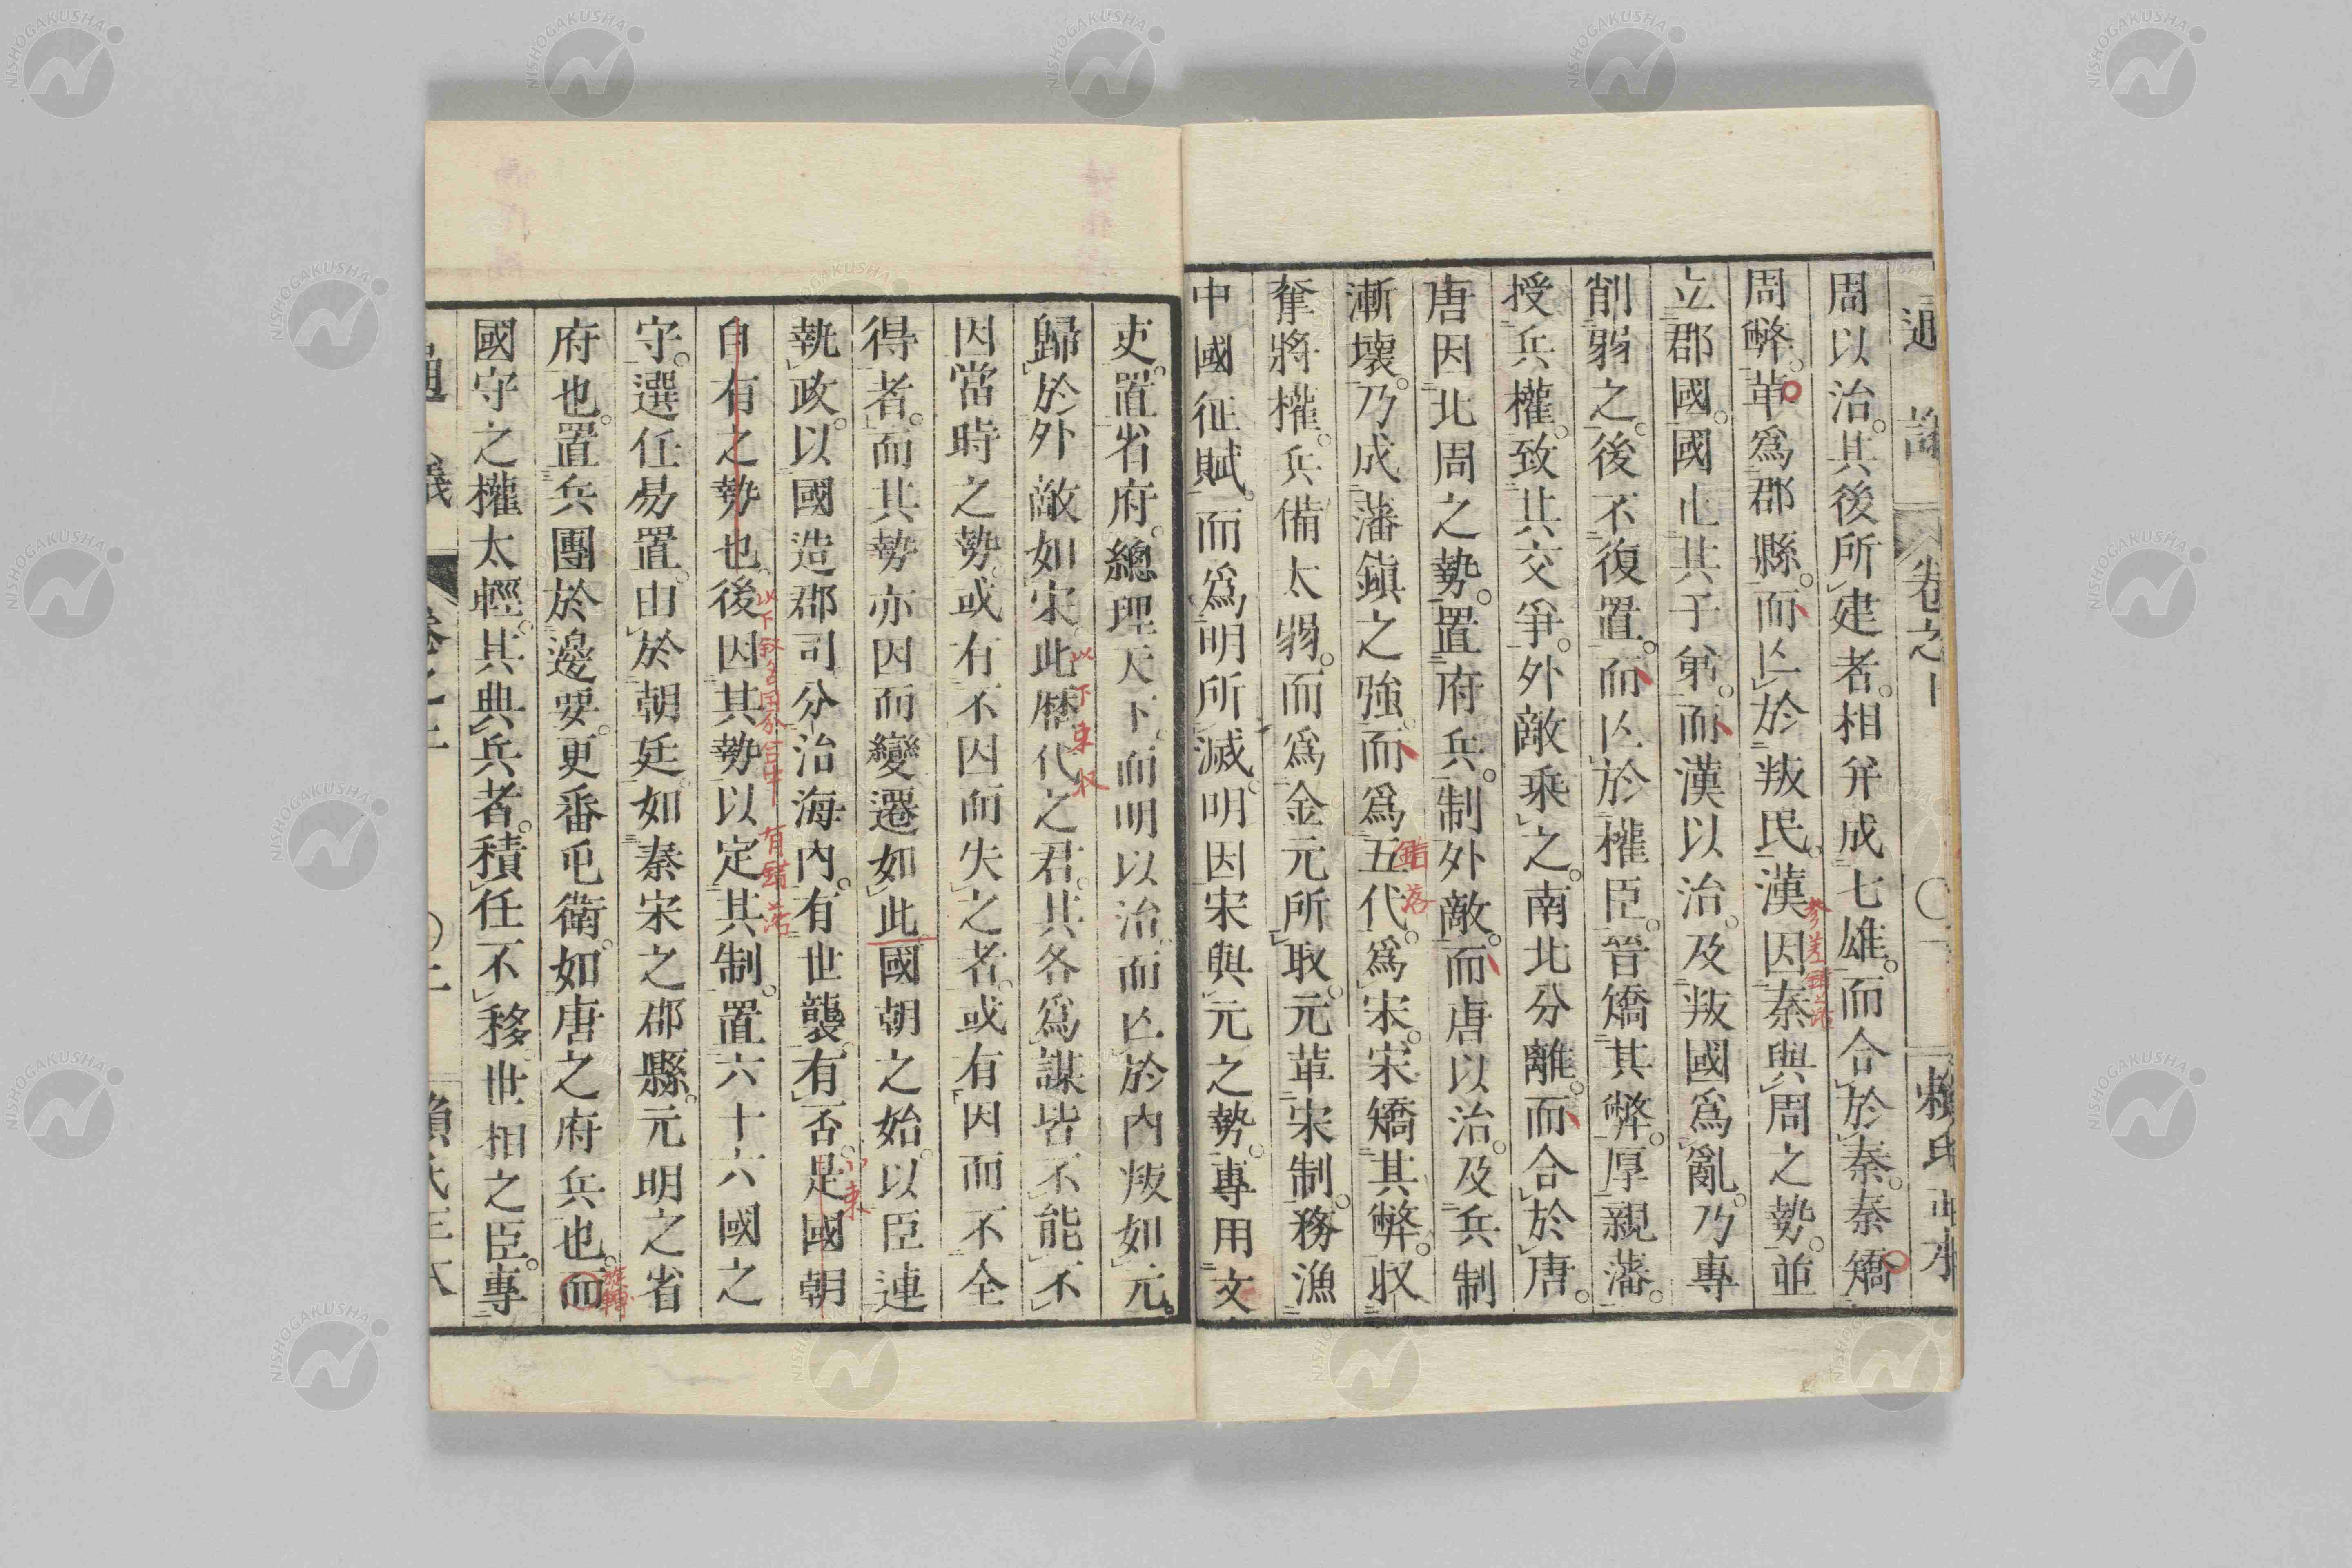 周以治。其後所建者。相幷成七雄。而合於秦。秦矯
周弊。革爲郡縣。而亾於叛民。漢因秦與周之勢。並
立郡國。國止其子弟。而漢以治。及叛國爲亂。乃專
削弱之。後不復置。而亾於權臣。晉矯其弊。厚親藩。
授兵權。致其交爭。外敵乘之。南北分離。而合於唐。
唐因北周之勢。置府兵。制外敵。而唐以治。及兵制
漸壞。乃成藩鎭之強。而爲五代。爲宋。宋矯其弊。収
奪將權。兵備太弱。而爲金元所取。元革宋制。務漁
中國征賦。而爲明所滅。明因宋與元之勢。專用文
吏。置省府。總理天下。而明以治。而亾於內叛如元。
歸於外敵如宋。此歷代之君。其各爲謀皆不能不
因當時之勢。或有不因而失之者。或有因而不全
得者。而其勢亦因而變遷如此。國朝之始。以臣連
執政。以國造郡司分治海內。有世襲。有否。是國朝
自有之勢也。後因其勢以定其制。置六十六國之
守。選任易置。由於朝廷。如秦宋之郡縣。元明之省
府也。置兵團於邊要。更番屯衛。如唐之府兵也。而
國守之權太輕。其典兵者。積任不移。世相之臣。專
以下束収
以下叙吾国分合中
有錯落
錯落
參差錯落
旋轉